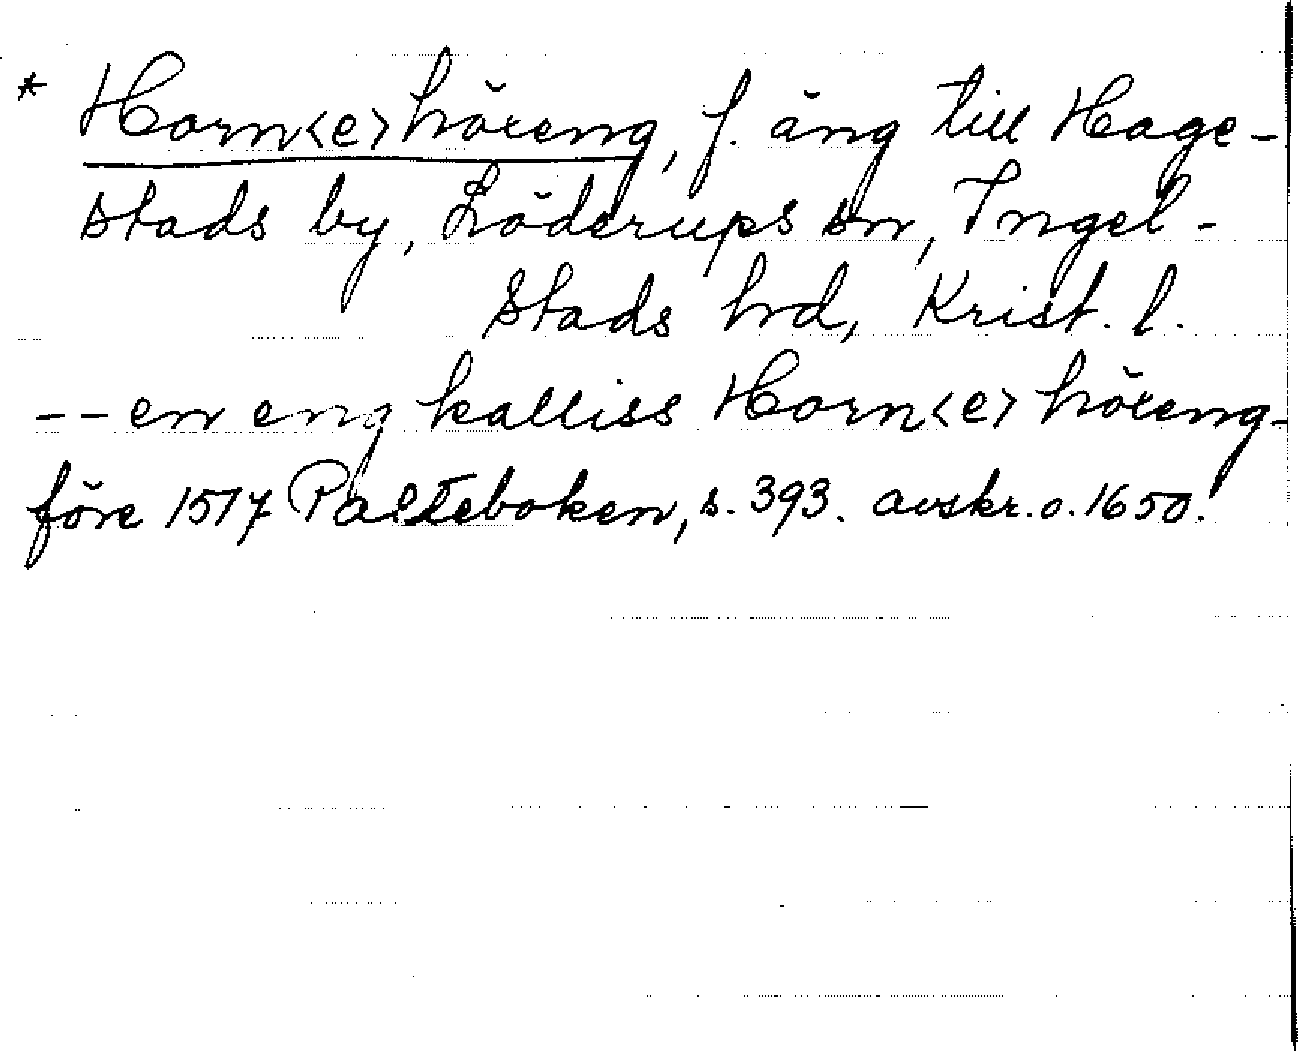 * Horn<e>höxeng, f. äng till Hage-
stads by, Löderups sn, Ingel-
stads hd, Krist. l.
-- en eng kalliss Horn<e>höxeng-
före 1517 Palteboken, s. 393. avskr. o. 1650.